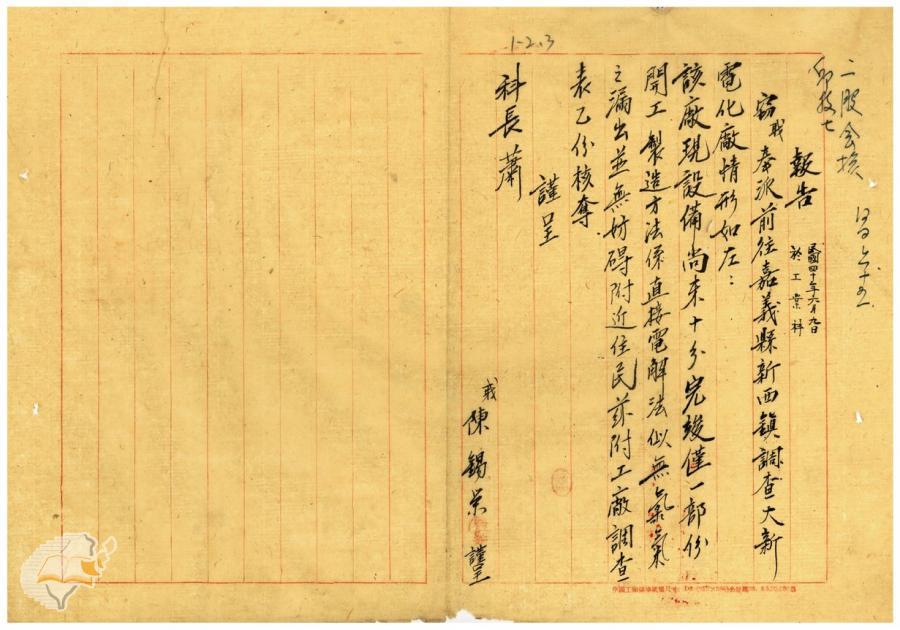 1-2.3
報告
民國四十年六月九日
於工業科
竊職奉派前往嘉義縣新西鎮調查大新
電化廠情形如左：
該廠現設備尚未十分完竣僅一部份
開工製造方法係直接電解法似無氯氣
之漏出並無妨碍附近住民茲附工廠調查
表乙份核奪
謹呈
科長蕭
職陳錫榮謹呈